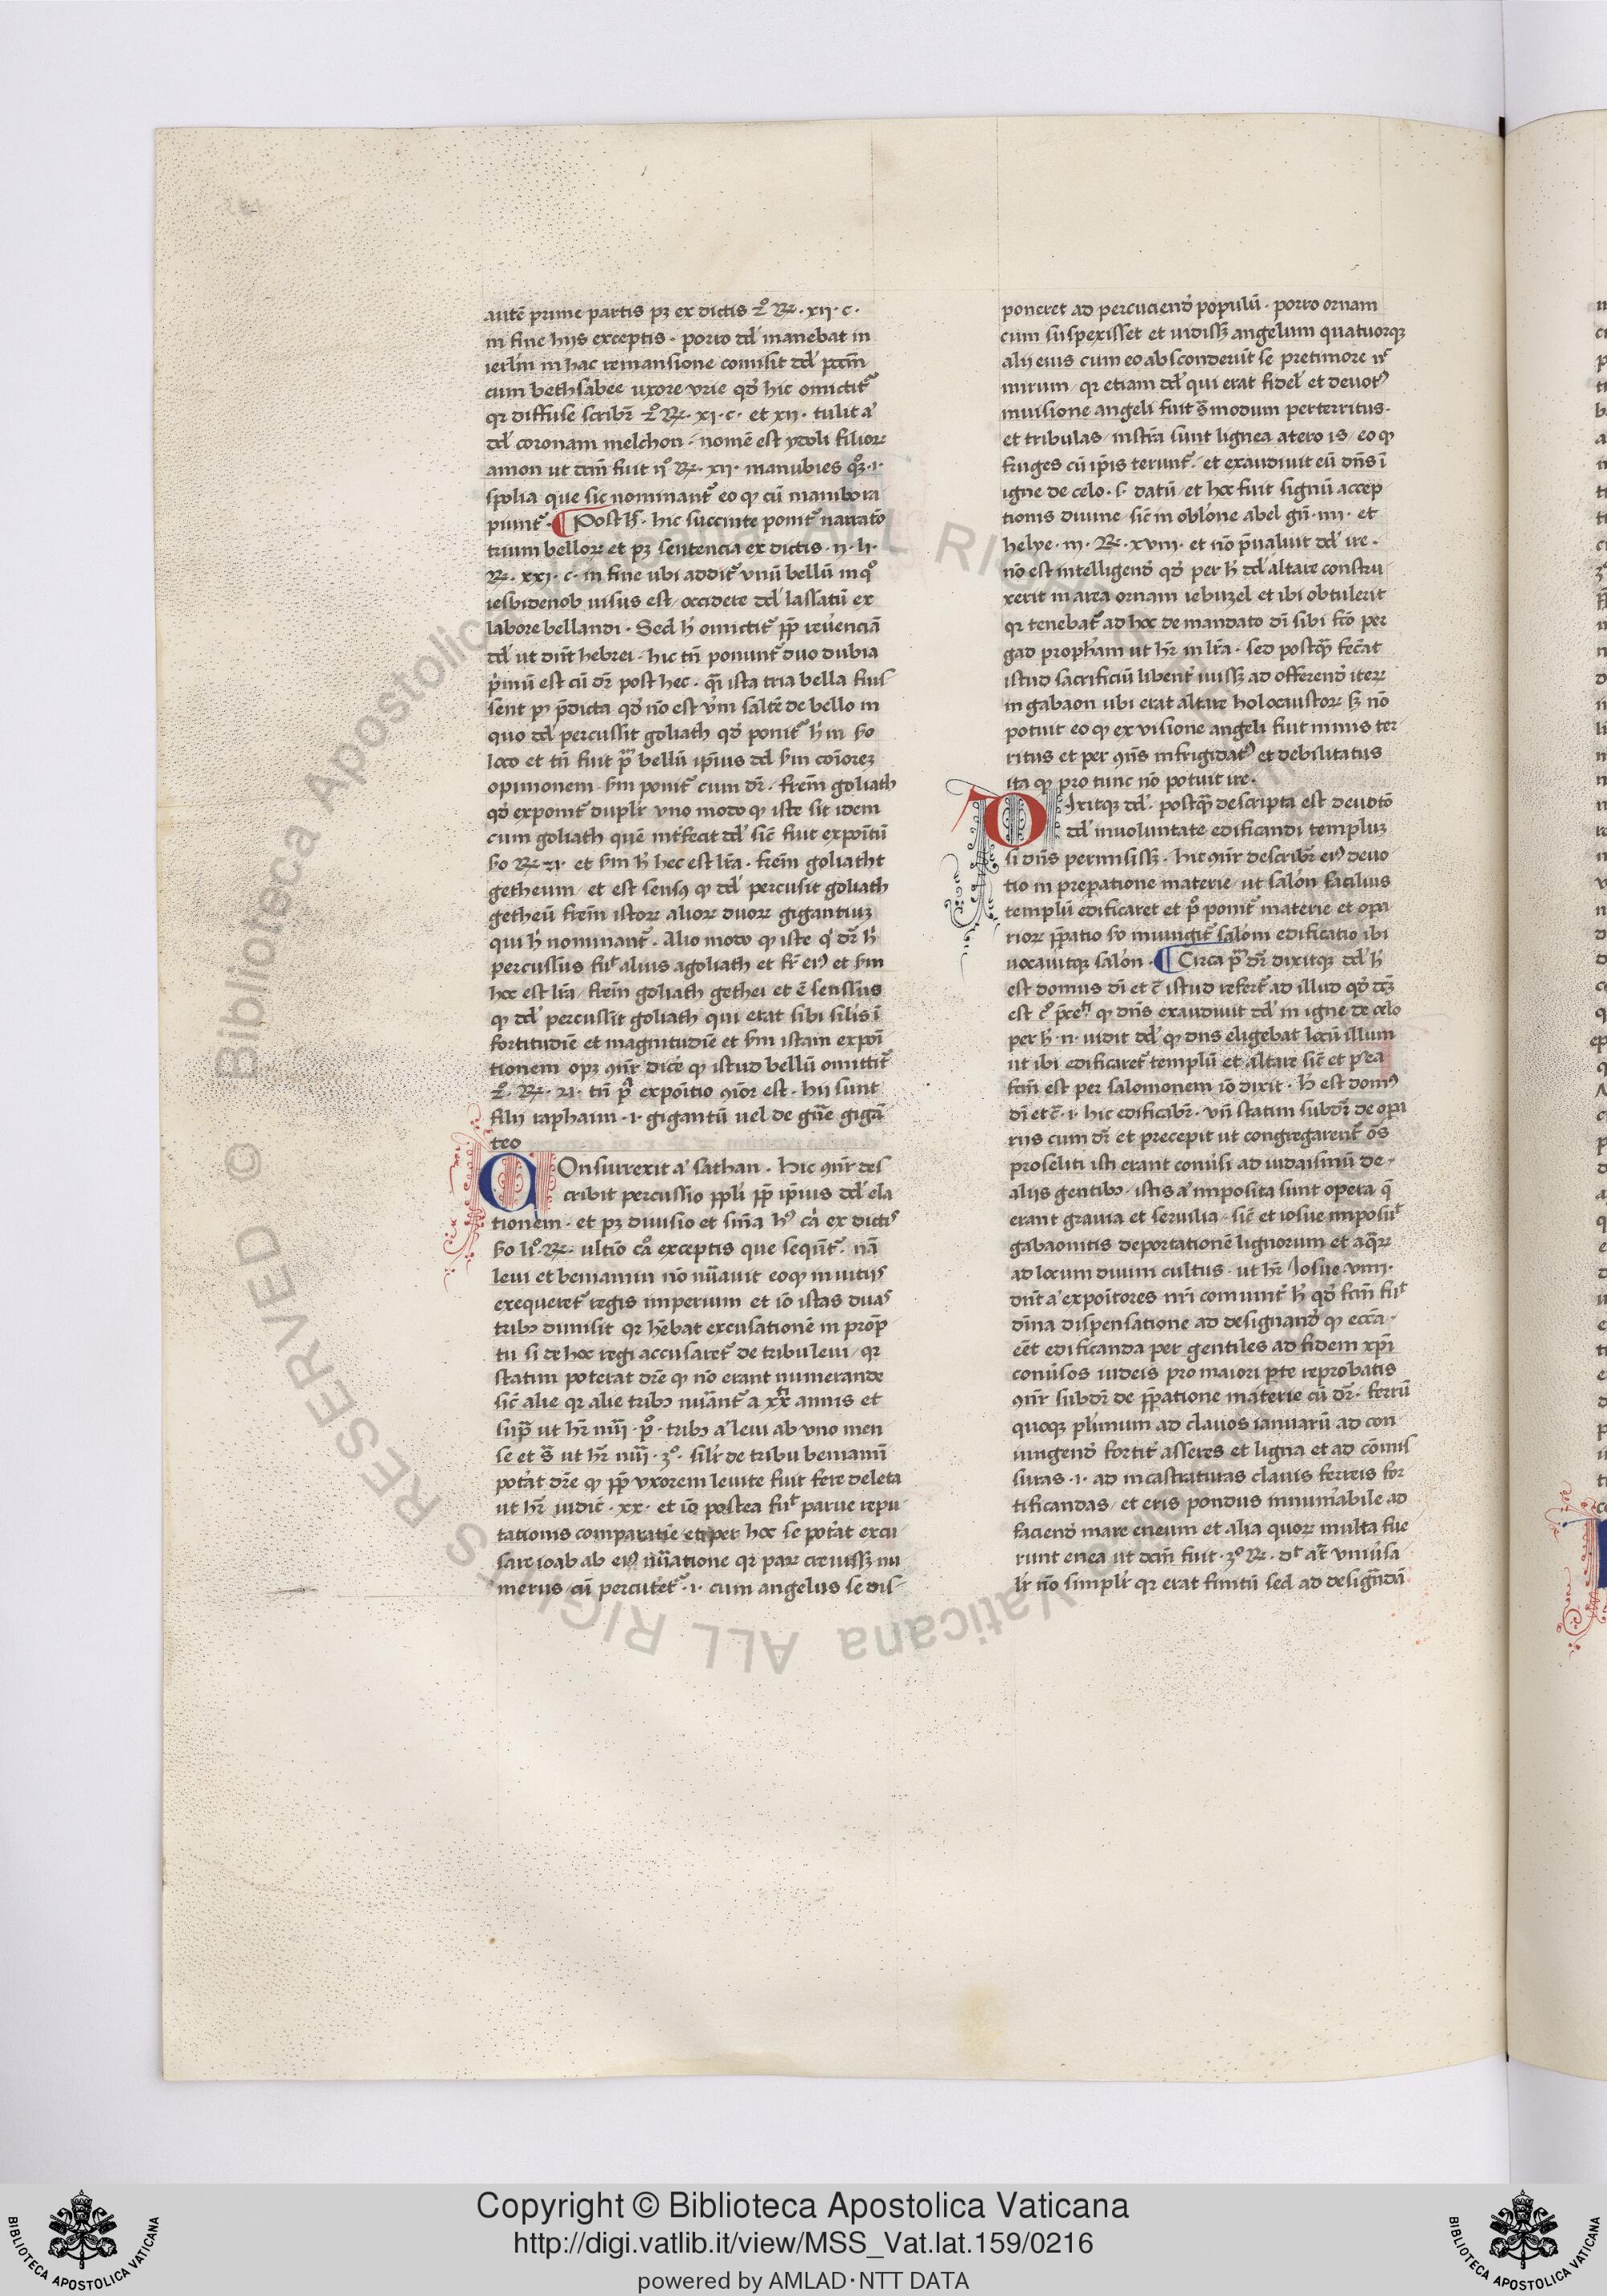 autē prime partis pꝫ ex dictis 2º Rꝭ · xij · c ·
in fine hijs exceptis · porro dd̕ manebat in
ierl̄m in hac remansione cōmisit dd̕ pccm̄
cum bethsabee uxore vrie qd̕ hic omictit᷑
qꝛ diffuse scribit᷑ 2º Rꝭ · xj · c · et xij · tulit a͛
dd̕ coronam melchon · nomē est ydoli filioꝝ
amon ut dcm̄ fuit ijº Rꝭ · xij · manubies qꝫ · i ·
spolia que sic nominant᷑ eo ꝙ cū manibꝫ ra
piunt᷑ · ¶ Post h̕ · hic succinte ponit᷑ narratō
trium belloꝝ et pꝫ sentencia ex dictis · ij · li ·
Rꝭ · xxj · c · in fine ubi addit᷑ vnū bellū in qº
iesbidenob uisus est / occidere dd̕ lassatū ex
labore bellandi · Sed h̕ omictit᷑ ꝓp̄ reuēnciā
dd̕ ut dn̄t hebrei · hic tn̄ ponunt᷑ duo dubia
p̍mū est cū dr̄ post hec · qꝛ ista tria bella fuis
sent pꝰ p̄dicta qd̕ nō est vm̄ saltē de bello in
quo dd̕ percussit goliath qd̕ ponit᷑ h̍ in sº
loco et tn̄ fuit pᵐ bellū ip̄ius dd̕ sm̄ cōiorez
opinionem · sm̄ ponit᷑ cum dr̄ · frēm goliath
qd̕ exponit᷑ duplr̄ vno modo ꝙ iste sit idem
cum goliath quē int̕fecit dd̕ sic̄ fuit expoītū
sº Rꝭ 21 · et sm̄ h̍ hec est lr̄a · frēm goliath
getheum / et est sensꝰ ꝙ dd̕ percusit goliath
getheū frēm istoꝝ alioꝝ duoꝝ gigantiuꝫ
qui h̍ nominant᷑ · Alio modo ꝙ iste q̍ dr̄ h̍
percussus fuit alius a goliath et fr̄ eiꝰ et sm̄
hoc est lr̄a / frēm goliath gethei et ē sensus
ꝙ dd̕ percussit goliath qui erat sibi sil̄is ī
fortitudīe et magnitudīe et sm̄ istam expoī
tionem opꝫ ꝯn̄r dicē ꝙ istud bellū omittit᷑
2º · Rꝭ · 21 · tn̄ pᵃ expoītio ꝯīor est · hij sunt
filij raphaim · i · gigantū uel de gn̄e gigā
teo
COnsurrexit a͛ sathan · Hic ꝯn̄r des
cribit percussio ppl̄i ꝓp̄ ip̄ius dd̕ ela
tionem · et pꝫ diuisio et sn̄ia hꝰ cᵃ ex dictis
sº liº · Rꝭ · ultīo cº exceptis que sequūt᷑ · nā
leui et beniamin nō nūauit eo ꝙ inuitus
exequeret᷑ regis imperium et iō istas duas
tribꝫ dimisit qꝛ hēbat excusationē in prop̄
tu si de hoc regi accusaret᷑ de tribu leui / qꝛ
statim poterat dr̄e ꝙ nō erant numerande
sic̄ alie qꝛ alie tribꝫ nūant᷑ a xx annis et
sup̄ ut hr̄ nūi · pº · tribꝫ a͛ leui ab vno men
se et sᵃ ut hr̄ nūi · 3º · sil̄r de tribu beniamī
pot̕at dr̄e ꝙ ꝓp̄ vxorem leuite fuit fere deleta
ut hr̄ iudic̄ · xx · et iō postea fuit parue repu
tationis comparatiē et per hoc se pot̕at excu
sare ioab ab eiꝰ nūatione qꝛ paꝝ creuissꝫ nu
merus cū percutēt᷑ · i · cum angelus se dis-
poneret ad percuciend̕ populū · porro ornam
cum suspexisset et uidissꝫ angelum quatuorqꝫ
alij eius cum eo absconderūt se pre timore n̄
mirum / qꝛ etiam dd̕ qui erat fidel̕ et deuotꝰ
in uisione angeli fuit sᵃ modum perterritus ·
et tribulas / instr̄a sunt lignea a tero is / eo ꝙ
fruges cū ip̄is terunt᷑ · et exaudiuit eū dn̄s ī
igne de celo · s̄ · datū / et hoc fuit signū accep
tionis diuine · sic̄ in obl̄one abel gn̄ · iiij · et
helye · iij · Rꝭ · xviij · et nō p̄ualuit dd̕ ire ·
nō est intelligend̕ qd̕ per h̍ dd̕ altare constru
xerit in area ornam iebuzei et ibi obtulerit
qꝛ tenebat᷑ ad hoc de mandato dī sibi fc̄o per
gad proph̄am ut hr̄ in lr̄a · sed postqᵃm fec̄at
istud sacrificiū libent᷑ iuissꝫ ad offerend̕ iteꝝ
in gabaon ubi erat altare holocaustoꝝ sꝫ nō
potuit eo ꝙ ex visione angeli fuit nimis ter
ritus et per ꝯn̄s infrigidatꝰ et debilitatus
ita ꝙ pro tunc nō potuit ire ·
DIxitqꝫ dd̕ · postqᵃm descripta est deuotō
dd̕ in uoluntate edificandi templuꝫ
si dn̄s permisissꝫ · hic ꝯn̄r describit᷑ eiꝰ deuo
tio in preparatione materie / ut salon̄ facilius
templū edificaret et pº ponit᷑ materie et opa
rioꝝ p̄patio sº iniungit᷑ salōni edificatio ibi
uocauitqꝫ salon̄ · ¶ Circa pᵐ dr̄ dixitqꝫ dd̕ h̍
est domus dī et c̄ istud refert᷑ ad illud qd̕ dc̄ꝫ
est cº p̄ceᵗⁱ ꝙ dn̄s exaudiuit dd̕ in igne de celo
per h̍ · n · uidit dd̕ ꝙ dn̄s eligebat locū illum
ut ibi edificaret᷑ templū et altare sic̄ et pꝰea
fcm̄ est per salomonem iō dixit · h̍ est domꝰ
dī et c̄ · i · hic edificabit᷑ · vn̄ statim subdit᷑ de opa
riis cum dr̄ et precepit ut congregarent᷑ oēs
proseliti isti erant conūsi ad iudaismū de
alijs gentibꝫ / istis a͛ imposita sunt opera q̄
erant grauia et seruilia · sic̄ et iosue imposuit
gabaonitis deportationē lignorum et aqᵃꝝ
ad locum diuini cultus · ut hr̄ Josue viiij ·
dn̄t a͛ expoītores nr̄i comunit᷑ h̍ qd̕ fcm̄ fuit
dīna dispensatione ad designand̕ ꝙ eccīa ·
eēt edificanda per gentiles ad fidem xp̄i
conūsos iudeis pro maiori pte reprobatis
ꝯn̄r subdit᷑ de p̄patione materie cū dr̄ · ferrū
quoqꝫ pl̄imum ad clauos ianuarū ad con
iungend̕ fortit᷑ asseres et ligna et ad cōmis
suras · i · ad incastraturas clauis ferreis for
tificandas / et eris pondus innum̕abile ad
faciend̕ mare eneum et alia quoꝝ multa fue
runt enea ut dcm̄ fuit · 3º Rꝭ · dr̄ a͛t vniūsa
lr̄ nō simplr̄ qꝛ erat finitū sed ad designᵃdā
© Biblioteca Apostolica Vaticana ALL RIGHTS RESERVED
Copyright © Biblioteca Apostolica Vaticana
http://digi.vatlib.it/view/MSS_Vat.lat.159/0216
powered by AMLAD·NTT DATA
BIBLIOTECA APOSTOLICA VATICANA
BIBLIOTECA APOSTOLICA VATICANA